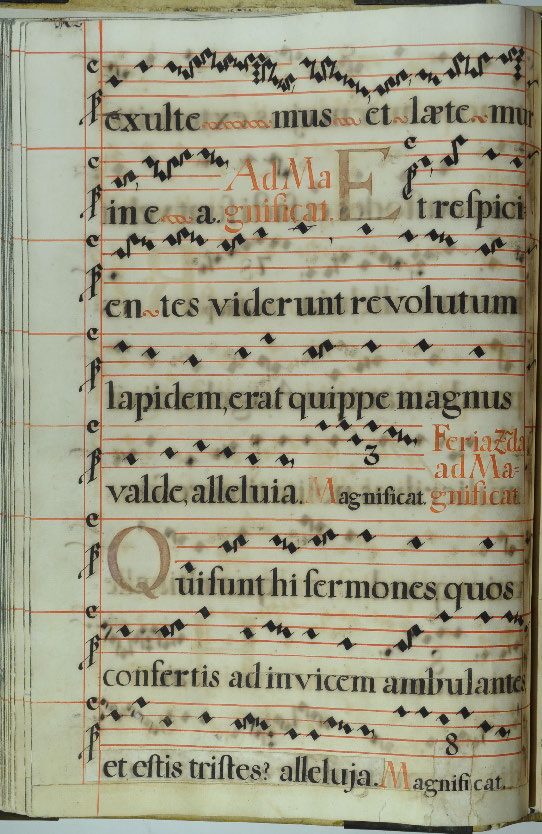 exulte mus et læte mur
in e a. Ad Ma
gnificat. Et reſpici
en tes viderunt revolutum
lapidem, erat quippe magnus
valde, alleluia. Magnificat. Feria 2da
ad Ma-
gnificat.
3
Qui ſunt hi ſermones, quos
confertis ad invicem ambulantes
et eſtis triſtes? alleluja. Magnificat.
8